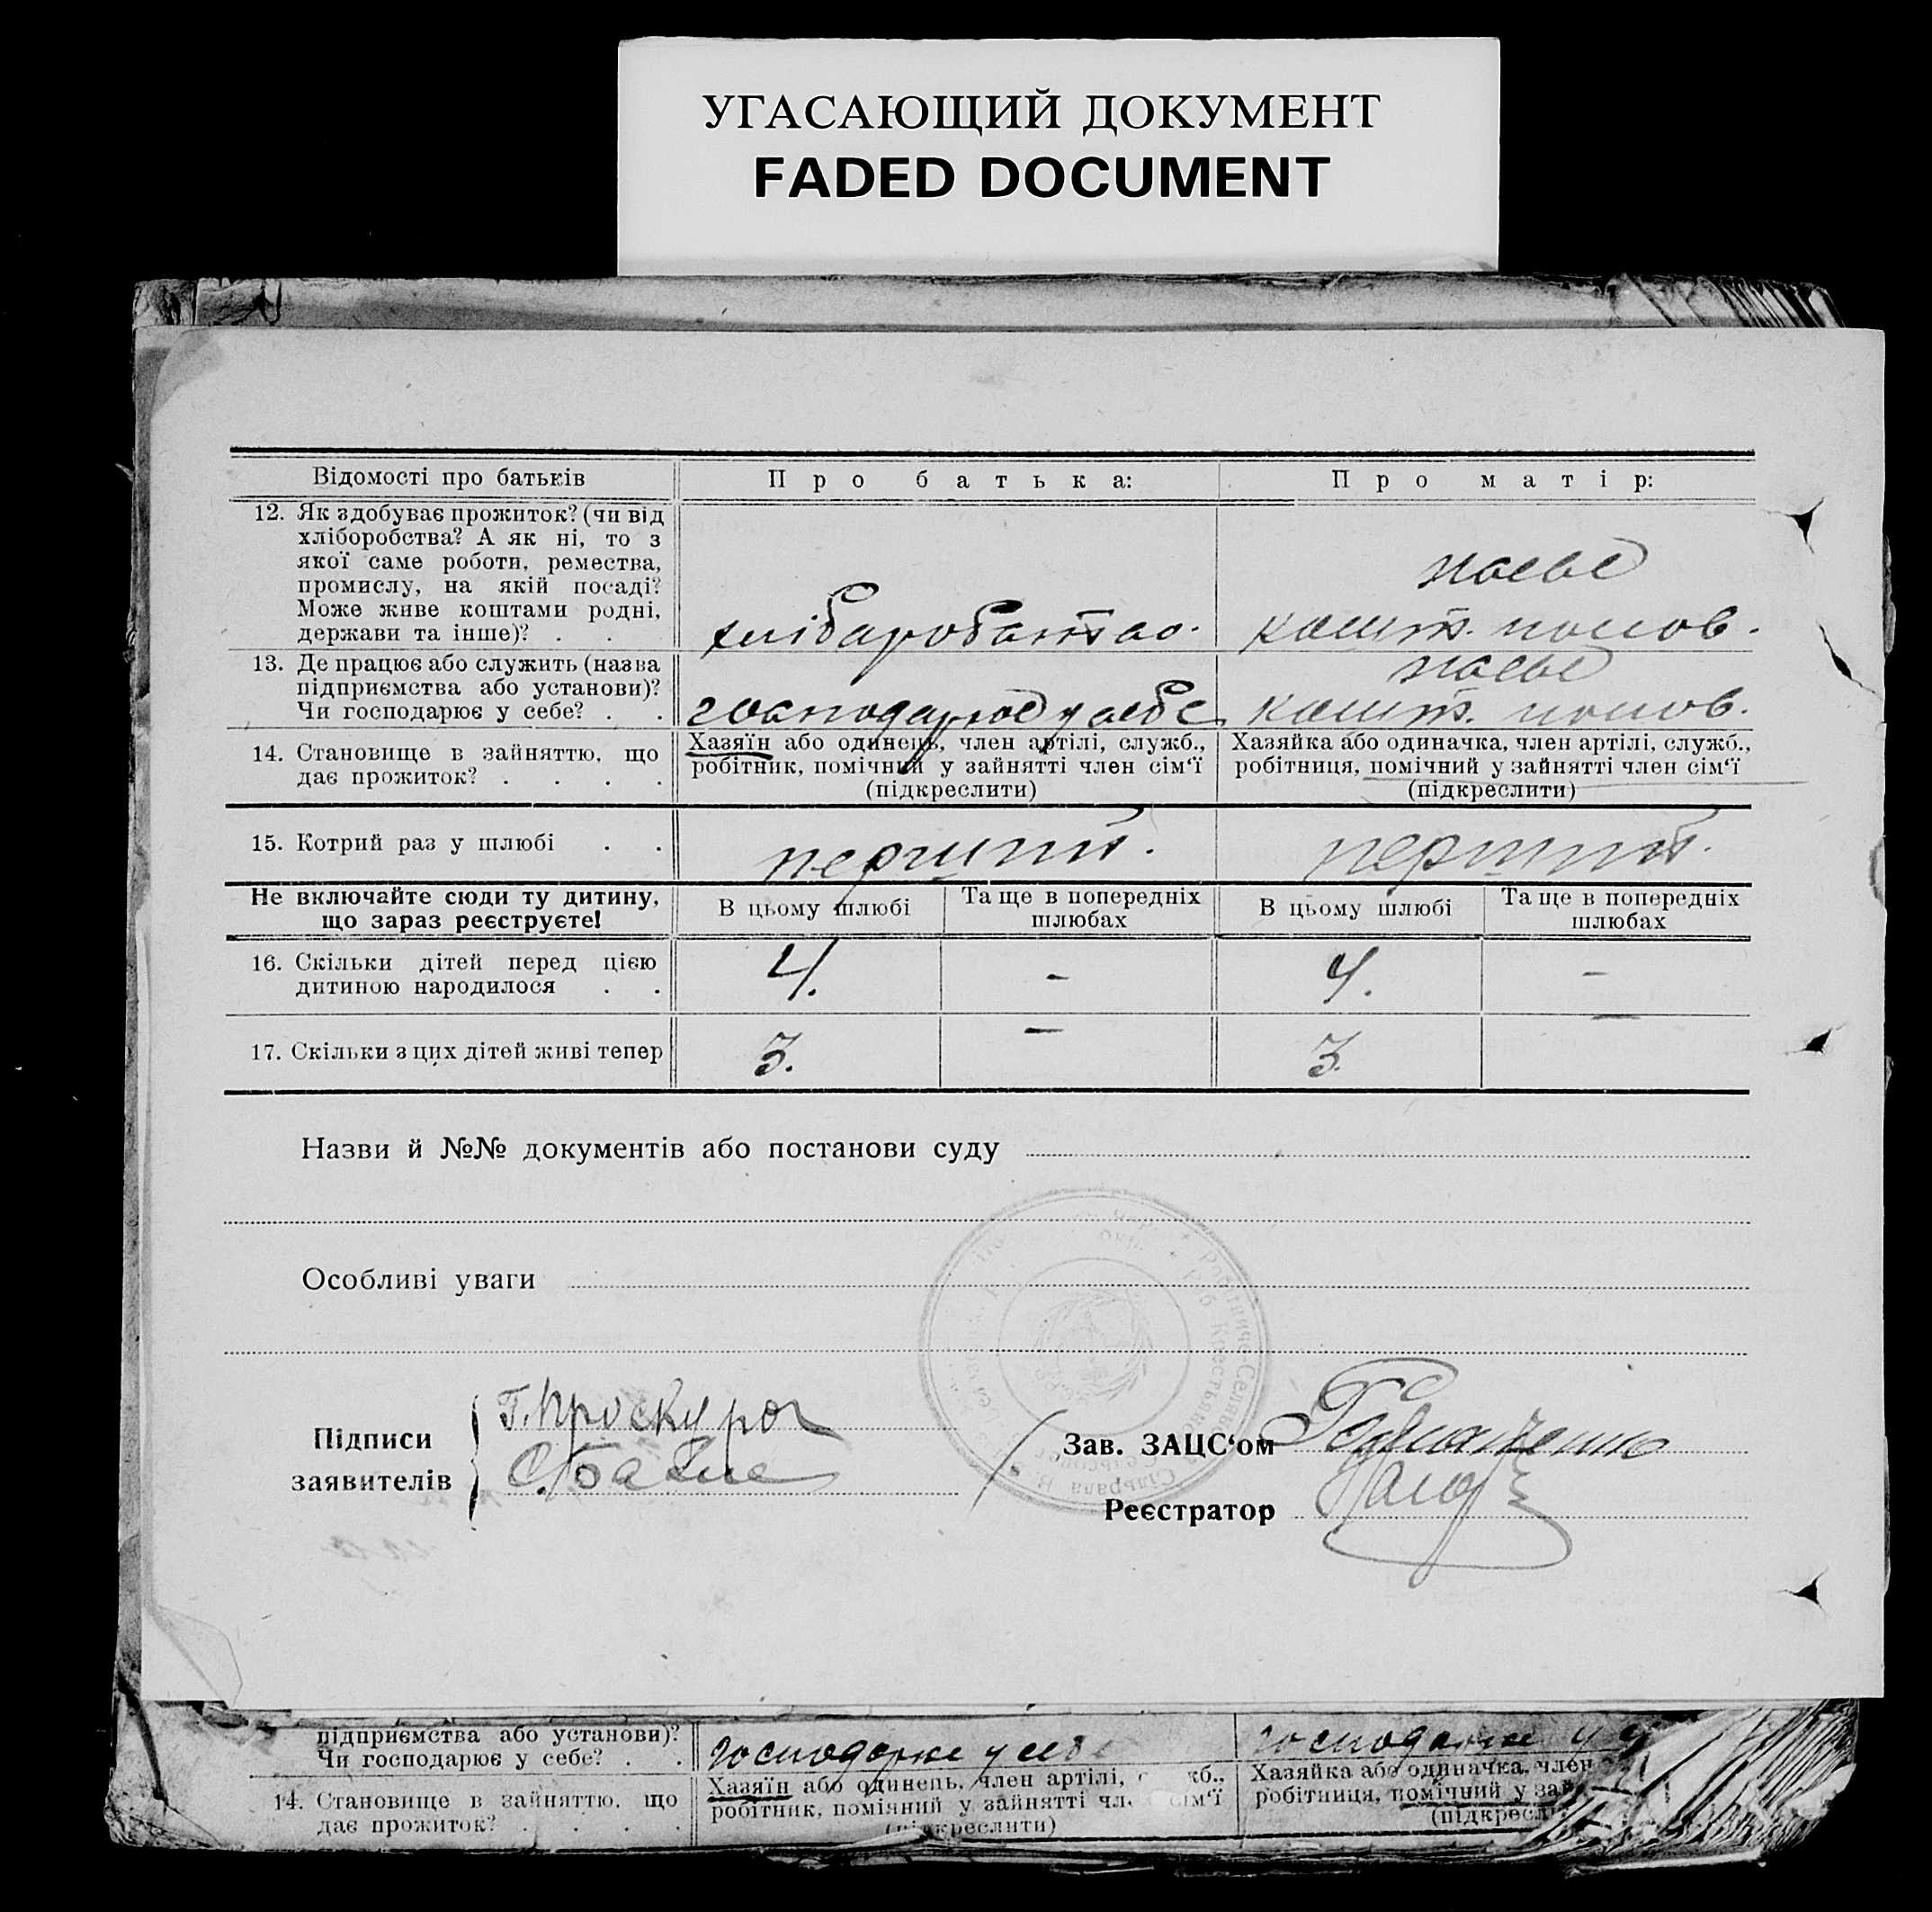 УГАСАЮЩИЙ ДОКУМЕНТ
FADED DOCUMENT
Відомості про батьків
Про батька:
Про матір:
12. Як здобуває прожиток? (чи від
хліборобства? А як ні, то з
якої саме роботи, ремества,
промислу, на якій посаді?
Може живе коштами родні,
держави та інше)? . .
кошт.
13. Де працює або служить (назва
підприємства або установи)?
Чи господарює у себе? . .
господарює у себе
кошт.
14. Становище в зайняттю, що
дає прожиток? . . . .
Хазяїн або одинець, член артілі, служб.,
робітник, помічний у зайнятті член сім'ї
(підкреслити)
Хазяйка або одиначка, член артілі, служб.,
робітниця, помічний у зайнятті член сім'ї
(підкреслити)
15. Котрий раз у шлюбі . .
перший.
перший.
Не включайте сюди ту дитину,
що зараз реєструєте!
В цьому шлюбі
Та ще в попередніх
шлюбах
В цьому шлюбі
Та ще в попередніх
шлюбах
16. Скільки дітей перед цією
дитиною народилося . .
4.
-
4.
-
17. Скільки з цих дітей живі тепер
3.
-
3.
-
Назви й №№ документів або постанови суду
Особливі уваги
Підписи
заявителів
Г. Проскура
Зав. ЗАЦС'ом
Реєстратор
підприємства або установи)?
Чи господарює у себе? . .
господарює у себе
господарює у
14. Становище в зайняттю, що
дає прожиток? . . . .
Хазяїн або одинець, член артілі,
робітник, помічний у зайнятті
сім'ї
Хазяйка або одиначка, член
робітниця, помічний у